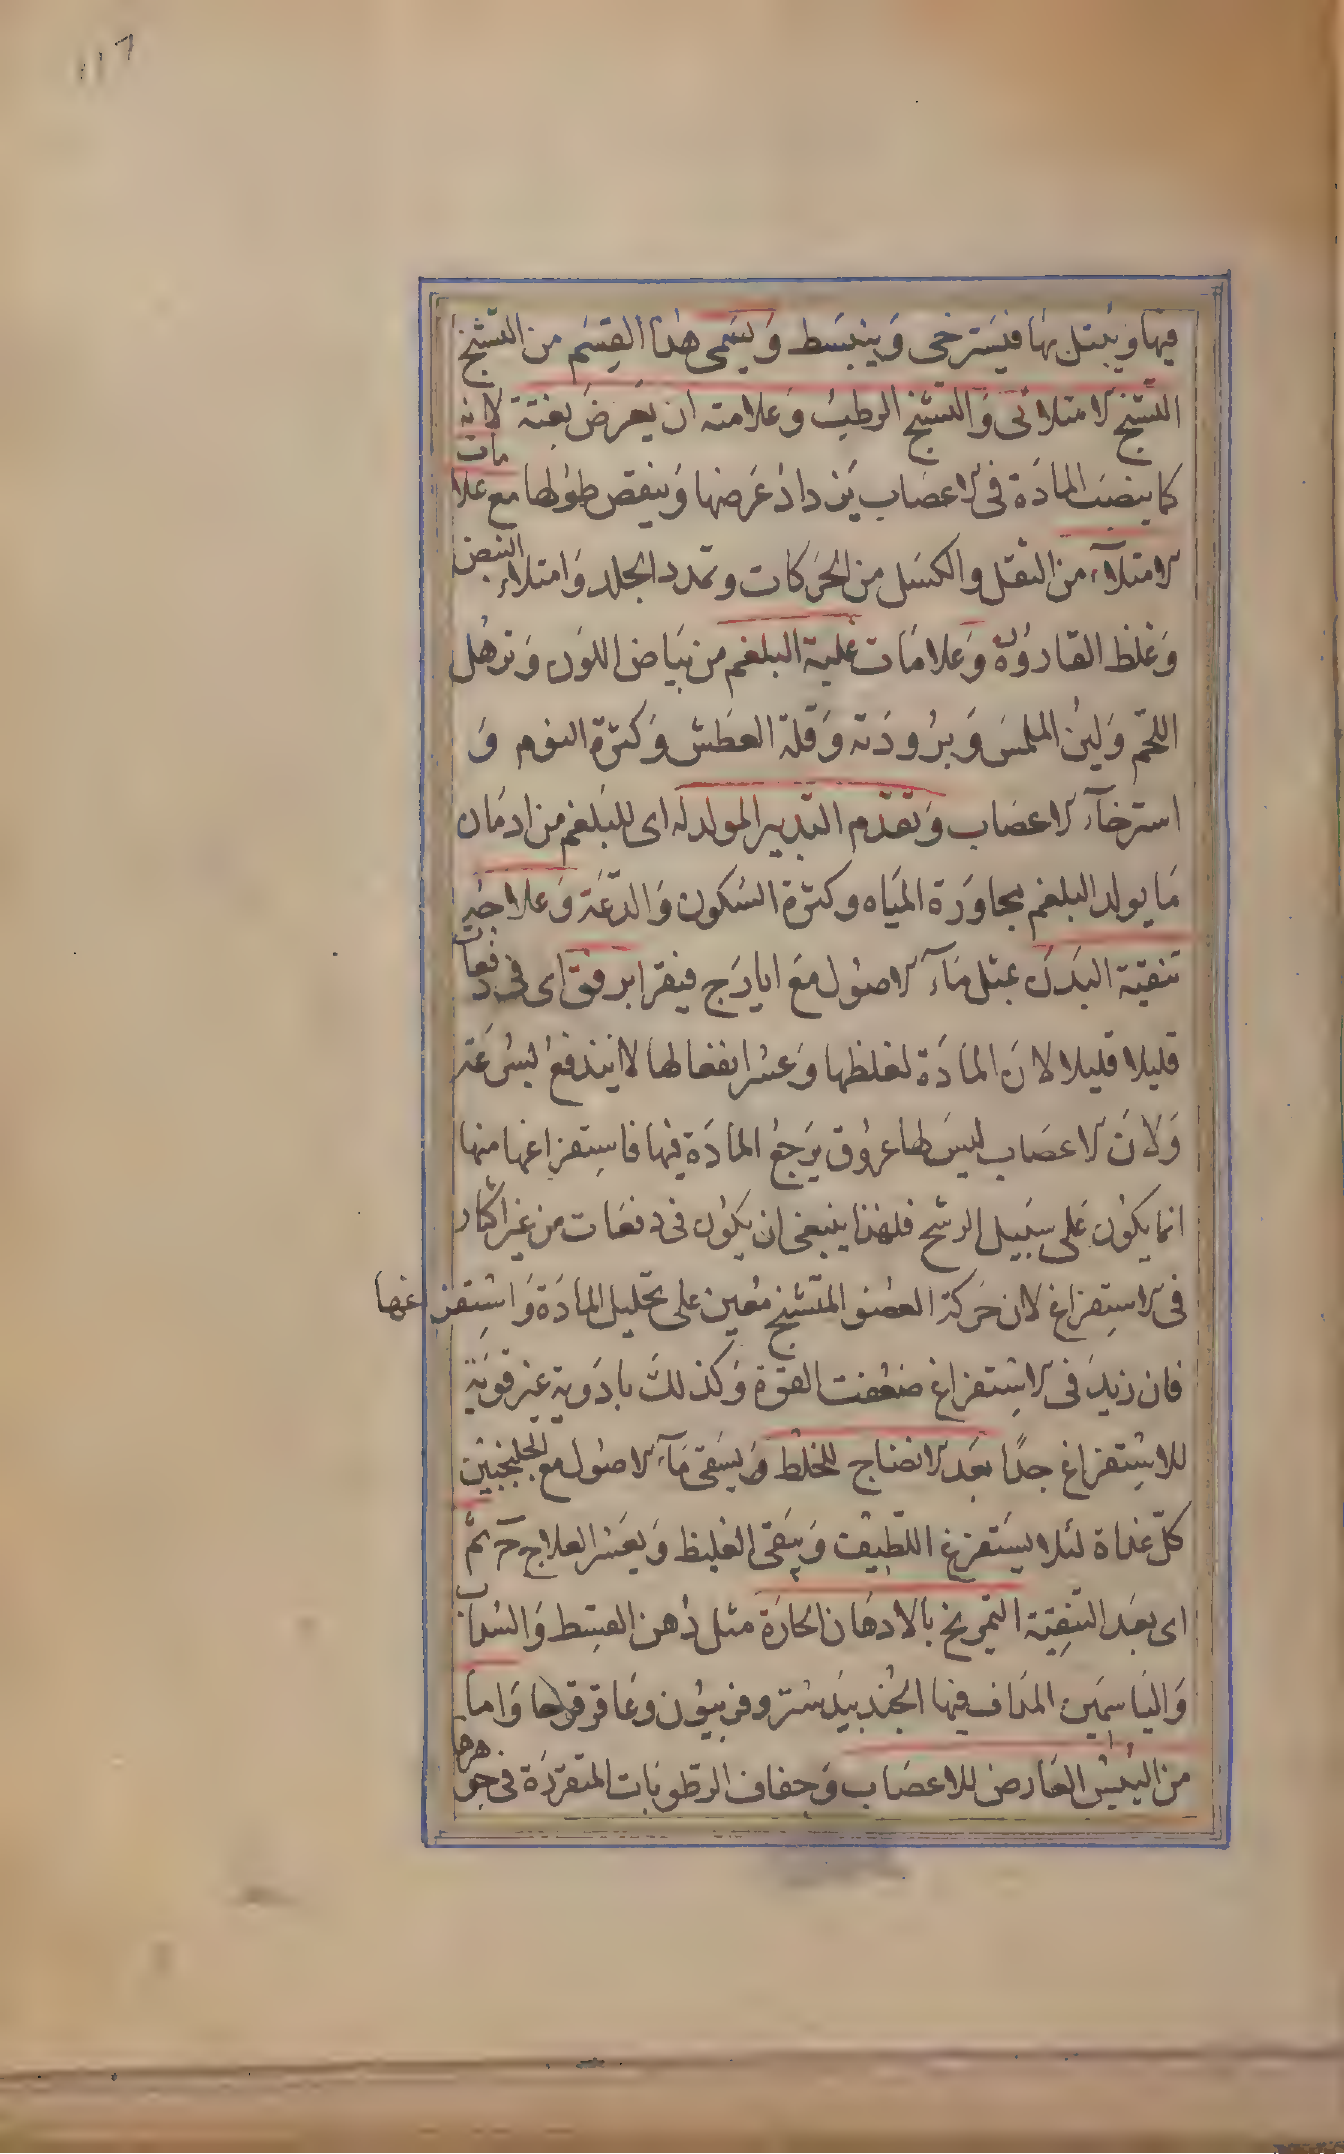 ١١٦
فيها ويبتل بها فيسترخى وينبسط ويسمى هذا القسم من التشنج
التشنج الامتلائى والتشنج الرطب وعلامته ان يعرض بغتة لانه
كما ينصب المادة فى الاعصاب يزداد عرضها وينقص طولها مع علامات
الامتلآء من الثقل والكسل من الحركات وتمدد الجلد وامتلاء النبض
وغلظ القارورة وعلامات غلبة البلغم من بياض اللون وترهل
اللحم ولين الملمس وبرودته وقلة العطش وكثرة النوم و
استرخآء الاعصاب وتقدم التدبير المولد له اى للبلغم من ادمان
ما يولد البلغم مجاورة المياه وكثرة السكون والدعة وعلاجه
تنقية البدن بمثل مآء الاصول مع ايارج فيقرا برفق اى فى دفعات
قليلا قليلا لان المادة لغلظها وعسر انفعالها لا يندفع بسرعة
ولان الاعصاب ليس لها عروق يرجع المادة فيها فاستفراغها منها
انما يكون على سبيل الرشح فلهذا ينبغى ان يكون فى دفعات من غير اكثار
فى الاستفراغ لان حركة العضو المتشنج معين على تحليل المادة واستفراغها
فان زيد فى الاستفراغ ضعفت القوة وكذلك بادوية غير قوية
للاستفراغ جدا بعد الانضاج للخلط ويسقى مآء الاصول مع الجلنجبين
كل غداة لئلا يستفرغ اللطيف ويبقى الغليظ ويعسر العلاج ح ثم
اى بعد التنقية التمريخ بالادهان الحارة مثل دهن القسط والسداب
والياسمين المداف فيها الجندبيدستر وفربيون وعاقرقرحا واما
من اليبس العارض للاعصاب وجفاف الرطوبات المتقررة فى جوهرها